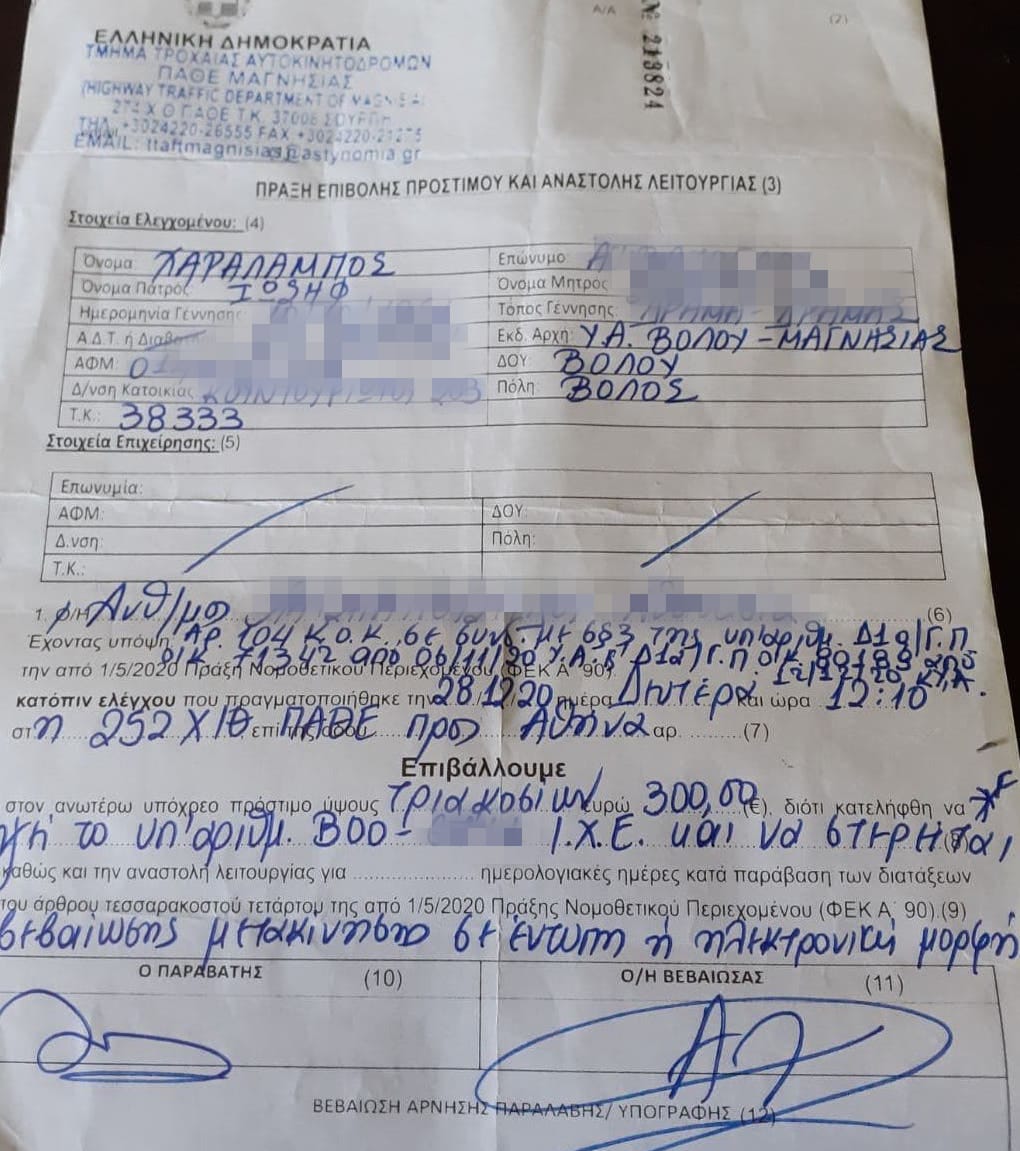 Α/Α
(2)
№ 213824
ΕΛΛΗΝΙΚΗ ΔΗΜΟΚΡΑΤΙΑ
ΤΜΗΜΑ ΤΡΟΧΑΙΑΣ ΑΥΤΟΚΙΝΗΤΟΔΡΟΜΩΝ
ΠΑΘΕ ΜΑΓΝΗΣΙΑΣ
(HIGHWAY TRAFFIC DEPARTMENT OF MAGNESIA)
Χ Θ ΠΑΘΕ Τ.Κ. 37006 ΣΟΥΡΠΗ
ΤΗΛ. +3024220-26555 FAX +3024220-
EMAIL: ttaftmagnisias@astynomia.gr
ΠΡΑΞΗ ΕΠΙΒΟΛΗΣ ΠΡΟΣΤΙΜΟΥ ΚΑΙ ΑΝΑΣΤΟΛΗΣ ΛΕΙΤΟΥΡΓΙΑΣ (3)
Στοιχεία Ελεγχομένου: (4)
Όνομα: ΧΑΡΑΛΑΜΠΟΣ Επώνυμο: Α
Όνομα Πατρός ΙΩΣΗΦ Όνομα Μητρός
Ημερομηνία Γέννησης: Τόπος Γέννησης: ΔΡΑΜΑ - ΔΡΑΜΑΣ
Α.Δ.Τ. ή Διαβατ Εκδ. Αρχή: Υ.Α. ΒΟΛΟΥ - ΜΑΓΝΗΣΙΑΣ
ΑΦΜ: 01 ΔΟΥ: ΒΟΛΟΥ
Δ/νση Κατοικίας Πόλη: ΒΟΛΟΣ
Τ.Κ.: 38333
Στοιχεία Επιχείρησης: (5)
Επωνυμία:
ΑΦΜ: ΔΟΥ:
Δ.νση: Πόλη:
Τ.Κ.:
1. Ο/Η Ανθ/μος (6)
Έχοντας υπόψη: Αρ. 104 Κ.Ο.Κ. σε συνδ. με της υπ'αριθμ. Δ1α/Γ.Π
οικ 71342 από 06/11/20 Υ.Α. Δ1α/Γ.Π οικ
την από 1/5/2020 Πράξη Νομοθετικού Περιεχομένου (ΦΕΚ Α 90). Κ.Υ.Α.
κατόπιν ελέγχου που πραγματοποιήθηκε την 28.12.20 ημέρα Δευτέρα και ώρα 12:10
στη 252 Χ/Θ επί της οδού ΠΑΘΕ προς Αθήνα αρ. (7)
Επιβάλλουμε
στον ανωτέρω υπόχρεο πρόστιμο ύψους Τριακοσίων ευρώ 300,00 (€), διότι κατελήφθη να
το υπ'αριθμ. ΒΟΟ- Ι.Χ.Ε. και να στερηται,
καθώς και την αναστολή λειτουργίας για ημερολογιακές ημέρες κατά παράβαση των διατάξεων
του άρθρου τεσσαρακοστού τετάρτου της από 1/5/2020 Πράξης Νομοθετικού Περιεχομένου (ΦΕΚ Α 90).(9)
βεβαίωσης μετακίνησης σε έντυπη ή ηλεκτρονική μορφή
Ο ΠΑΡΑΒΑΤΗΣ (10) Ο/Η ΒΕΒΑΙΩΣΑΣ (11)
ΒΕΒΑΙΩΣΗ ΑΡΝΗΣΗΣ ΠΑΡΑΛΑΒΗΣ/ ΥΠΟΓΡΑΦΗΣ (12)